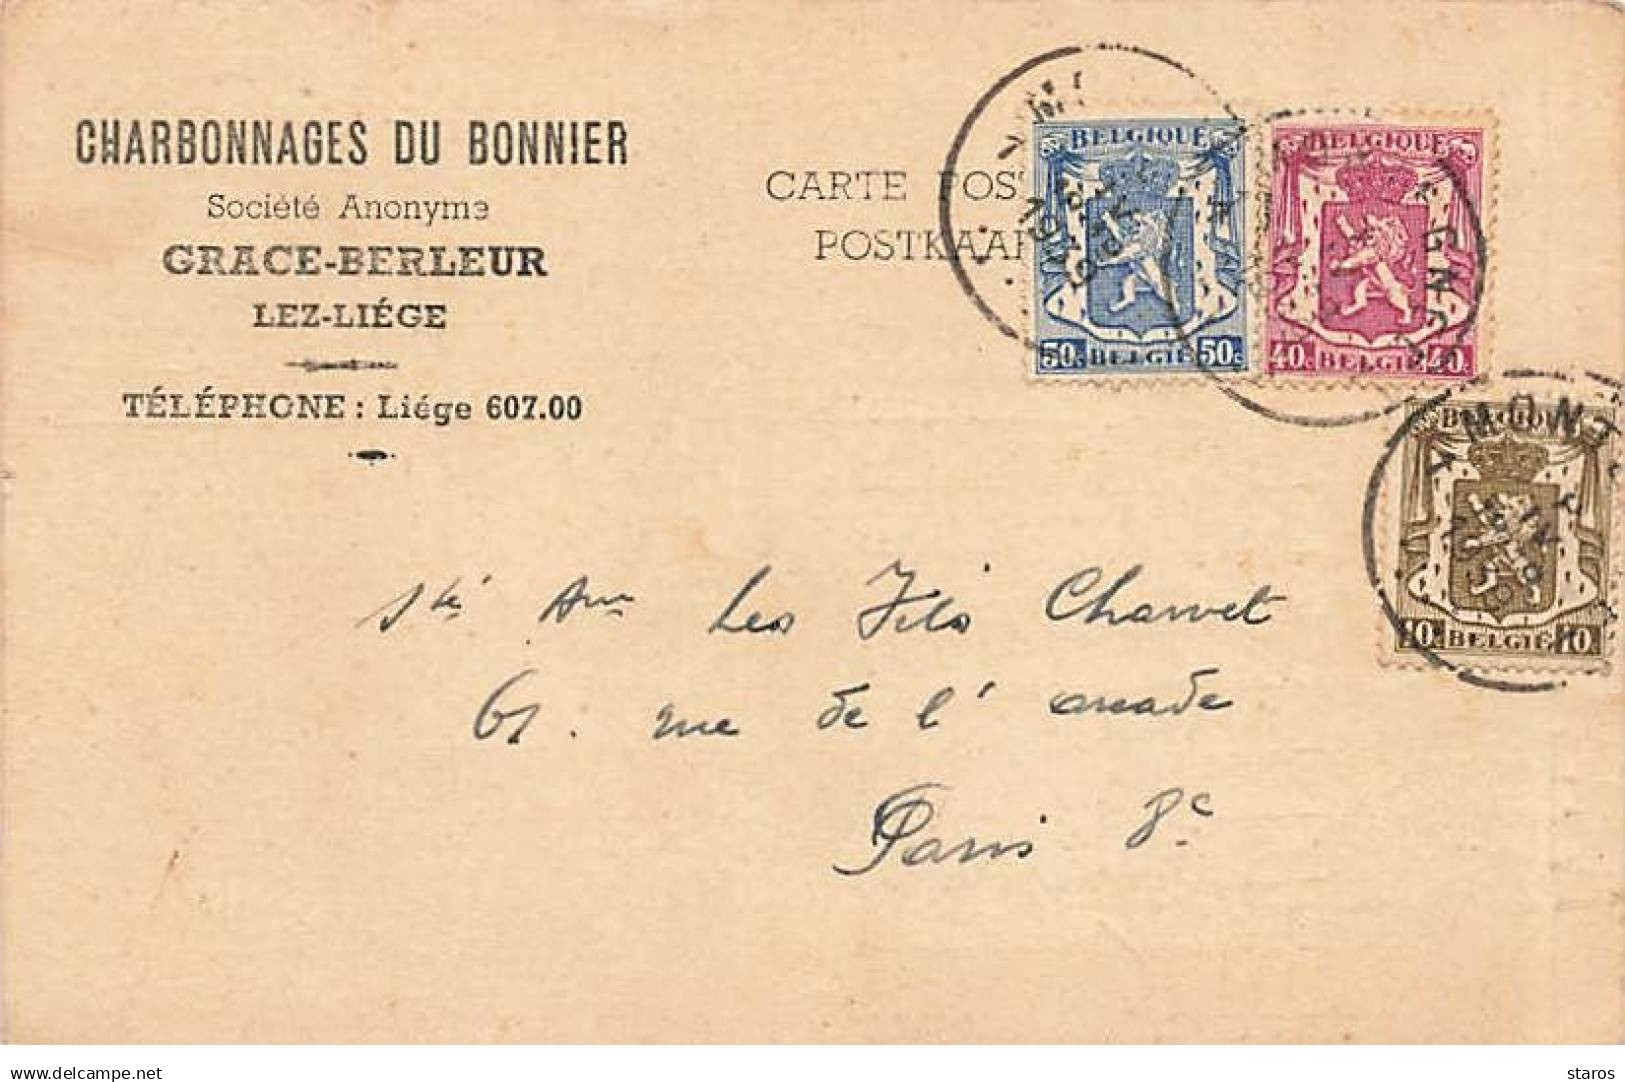 CHARBONNAGES DU BONNIER
Société Anonyme
GRACE-BERLEUR
LEZ-LIÉGE
TÉLÉPHONE : Liége 607.00
CARTE POS
POSTKAAR
BELGIQUE
50c BELGIË 50c
BELGIQUE
40c BELGIË 40c
BELGIQUE
10c BELGIË 10c
MONT
Sté Ame Les Fils Charvet
61. rue de l'arcade
Paris 8e
delcampe.net
staros